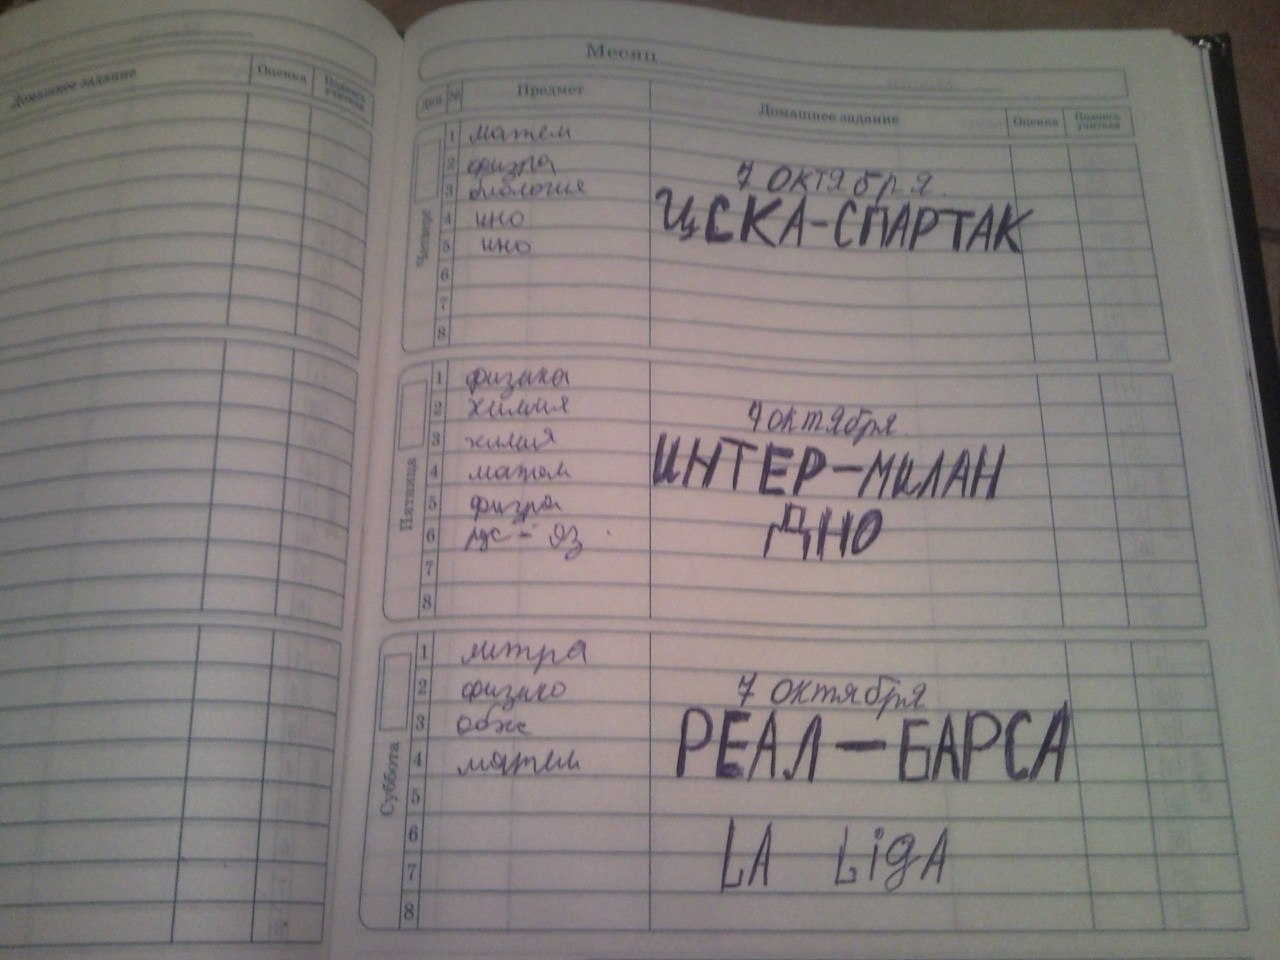 Домашнее задание
Оценка
Подпись учителя
Месяц
Дни
№
Предмет
Домашнее задание
Оценка
Подпись учителя
Четверг
1 матем
2 физра
3 биология
4 ино
5 ино
6
7
8
7 октября
ЦСКА-СПАРТАК
Пятница
1 физика
2 химия
3 химия
4 матем
5 физра
6 рус-яз
7
8
7 октября
ИНТЕР-МИЛАН
ДНО
Суббота
1 литра
2 физико
3 обж
4 матем
5
6
7
8
7 октября
РЕАЛ-БАРСА
LA LigA